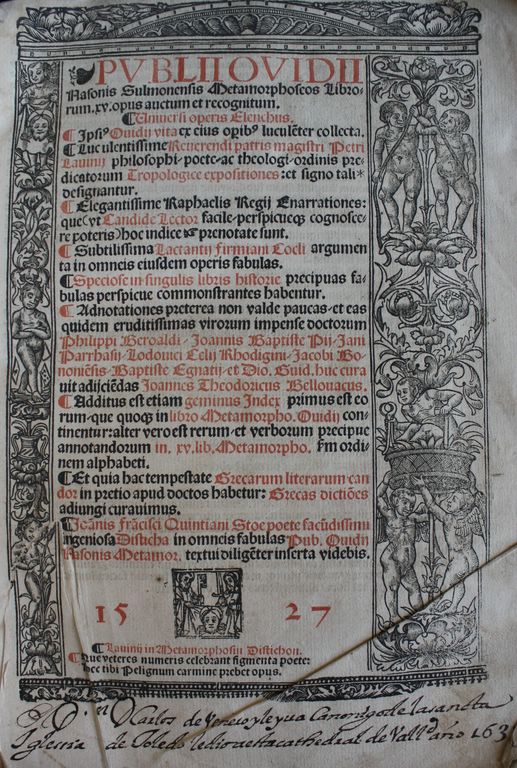 PVBLII OVIDII
Nasonis Sulmonensis Metamorphoseos Libro-
rum.xv.opus auctum et recognitum.
¶ Uniuersi operis Elenchus.
¶ Ipsius Ouidij vita ex eius oꝑibꝰ luculẽter collecta.
¶ Luculentissime Reuerendi patris magistri Petri
Lauinij philosophi-poete-ac theologi-ordinis pre-
dicatorum Tropologice expositiones:et signo tali*
designantur.
¶ Elegantissime Raphaelis Regij Enarrationes:
que(vt Candide Lector facile-perspicueqꝫ cognosce-
re poteris)hoc indice ☞ prenotate sunt.
¶ Subtilissima Lactantij firmiani Coeli argumen
ta in omneis eiusdem operis fabulas.
¶ Speciose in singulis libris historie precipuas fa-
bulas perspicue commonstrantes habentur.
¶ Adnotationes preterea non valde paucas-et eas
quidem eruditissimas virorum impense doctorum
Philippi Beroaldi-Joannis Baptiste Pij-Jani
Parrhasij-Lodouici Celij Rhodigini-Jacobi Bo-
noniẽsis-Baptiste Egnatij-et Dio. Guid. huc cura
uit adijciẽdas Joannes Theodoricus Bellouacus.
¶ Additus est etiam geminus Index primus est eo
rum-que quoqꝫ in libro Metamorpho. Ouidij con-
tinentur:alter vero est rerum-et verborum precipue
annotandorum in. xv.lib. Metamorpho. ẜm ordi-
nem alphabeti.
¶ Et quia hac tempestate Grecarum literarum can
dor in pretio apud doctos habetur: Grecas dictiões
adiungi curauimus.
¶ Joãnis frãcisci Quintiani Stoe poete facũdissimi
ingeniosa Disticha in omneis fabulas Pub. Ouidij
Nasonis Metamor. textui diligẽter inserta videbis.
15 27
¶ Lauinij in Metamorphosij Distichon.
¶ Que veteres numeris celebrant figmenta poete:
hec tibi Pelignum carmine prebet opus.
Carlos de Venero y leyua Canonigo de la sancta
Iglesia de Toledo le dio a esta cathedral de Vall.d año 163